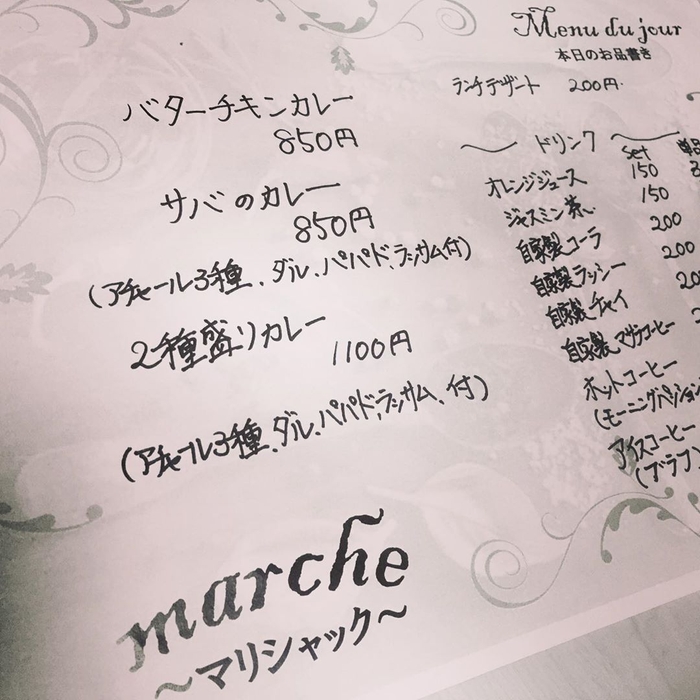 Menu du jour
本日のお品書き
ランチデザート 200円
バターチキンカレー
850円
サバのカレー
850円
(アチャール3種、ダル、パパド、ラッサム付)
2種盛りカレー
1100円
(アチャール3種、ダル、パパド、ラッサム、付)
ドリンク
set 単品
オレンジジュース 150
ジャスミン茶 150
自家製コーラ 200
自家製ラッシー 200
自家製チャイ
自家製マサラコーヒー
ホットコーヒー
(モーニングパッション
アイスコーヒー
marche
～マリシャック～